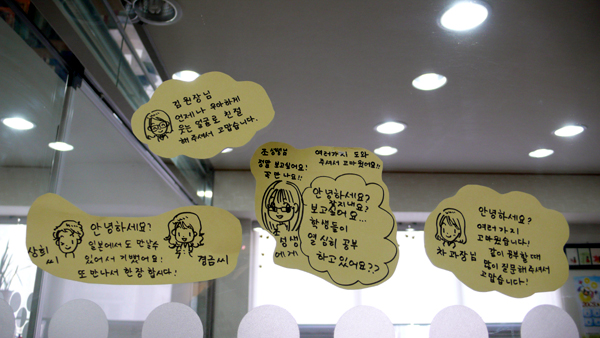 김원장님
언제나 우아하게
웃는 얼굴로 친절
해 주셔서 고맙습니다.
조선생님
정말 보고싶어요!
꼭 만나요!!
여러가지 도와
주셔서 고마웠어요!!
안녕하세요?
잘지내요?
보고싶어요...
학생들이
열심히 공부
하고 있어요??
에게
상희
씨
안녕하세요?
일본에서도 만날수
있어서 기뻤어요!
또 만나서 한잔 합시다!
경금씨
차과장님
안녕하세요?
여러가지
고마웠습니다!
같이 공부할 때
많이 질문해주셔서
고맙습니다!